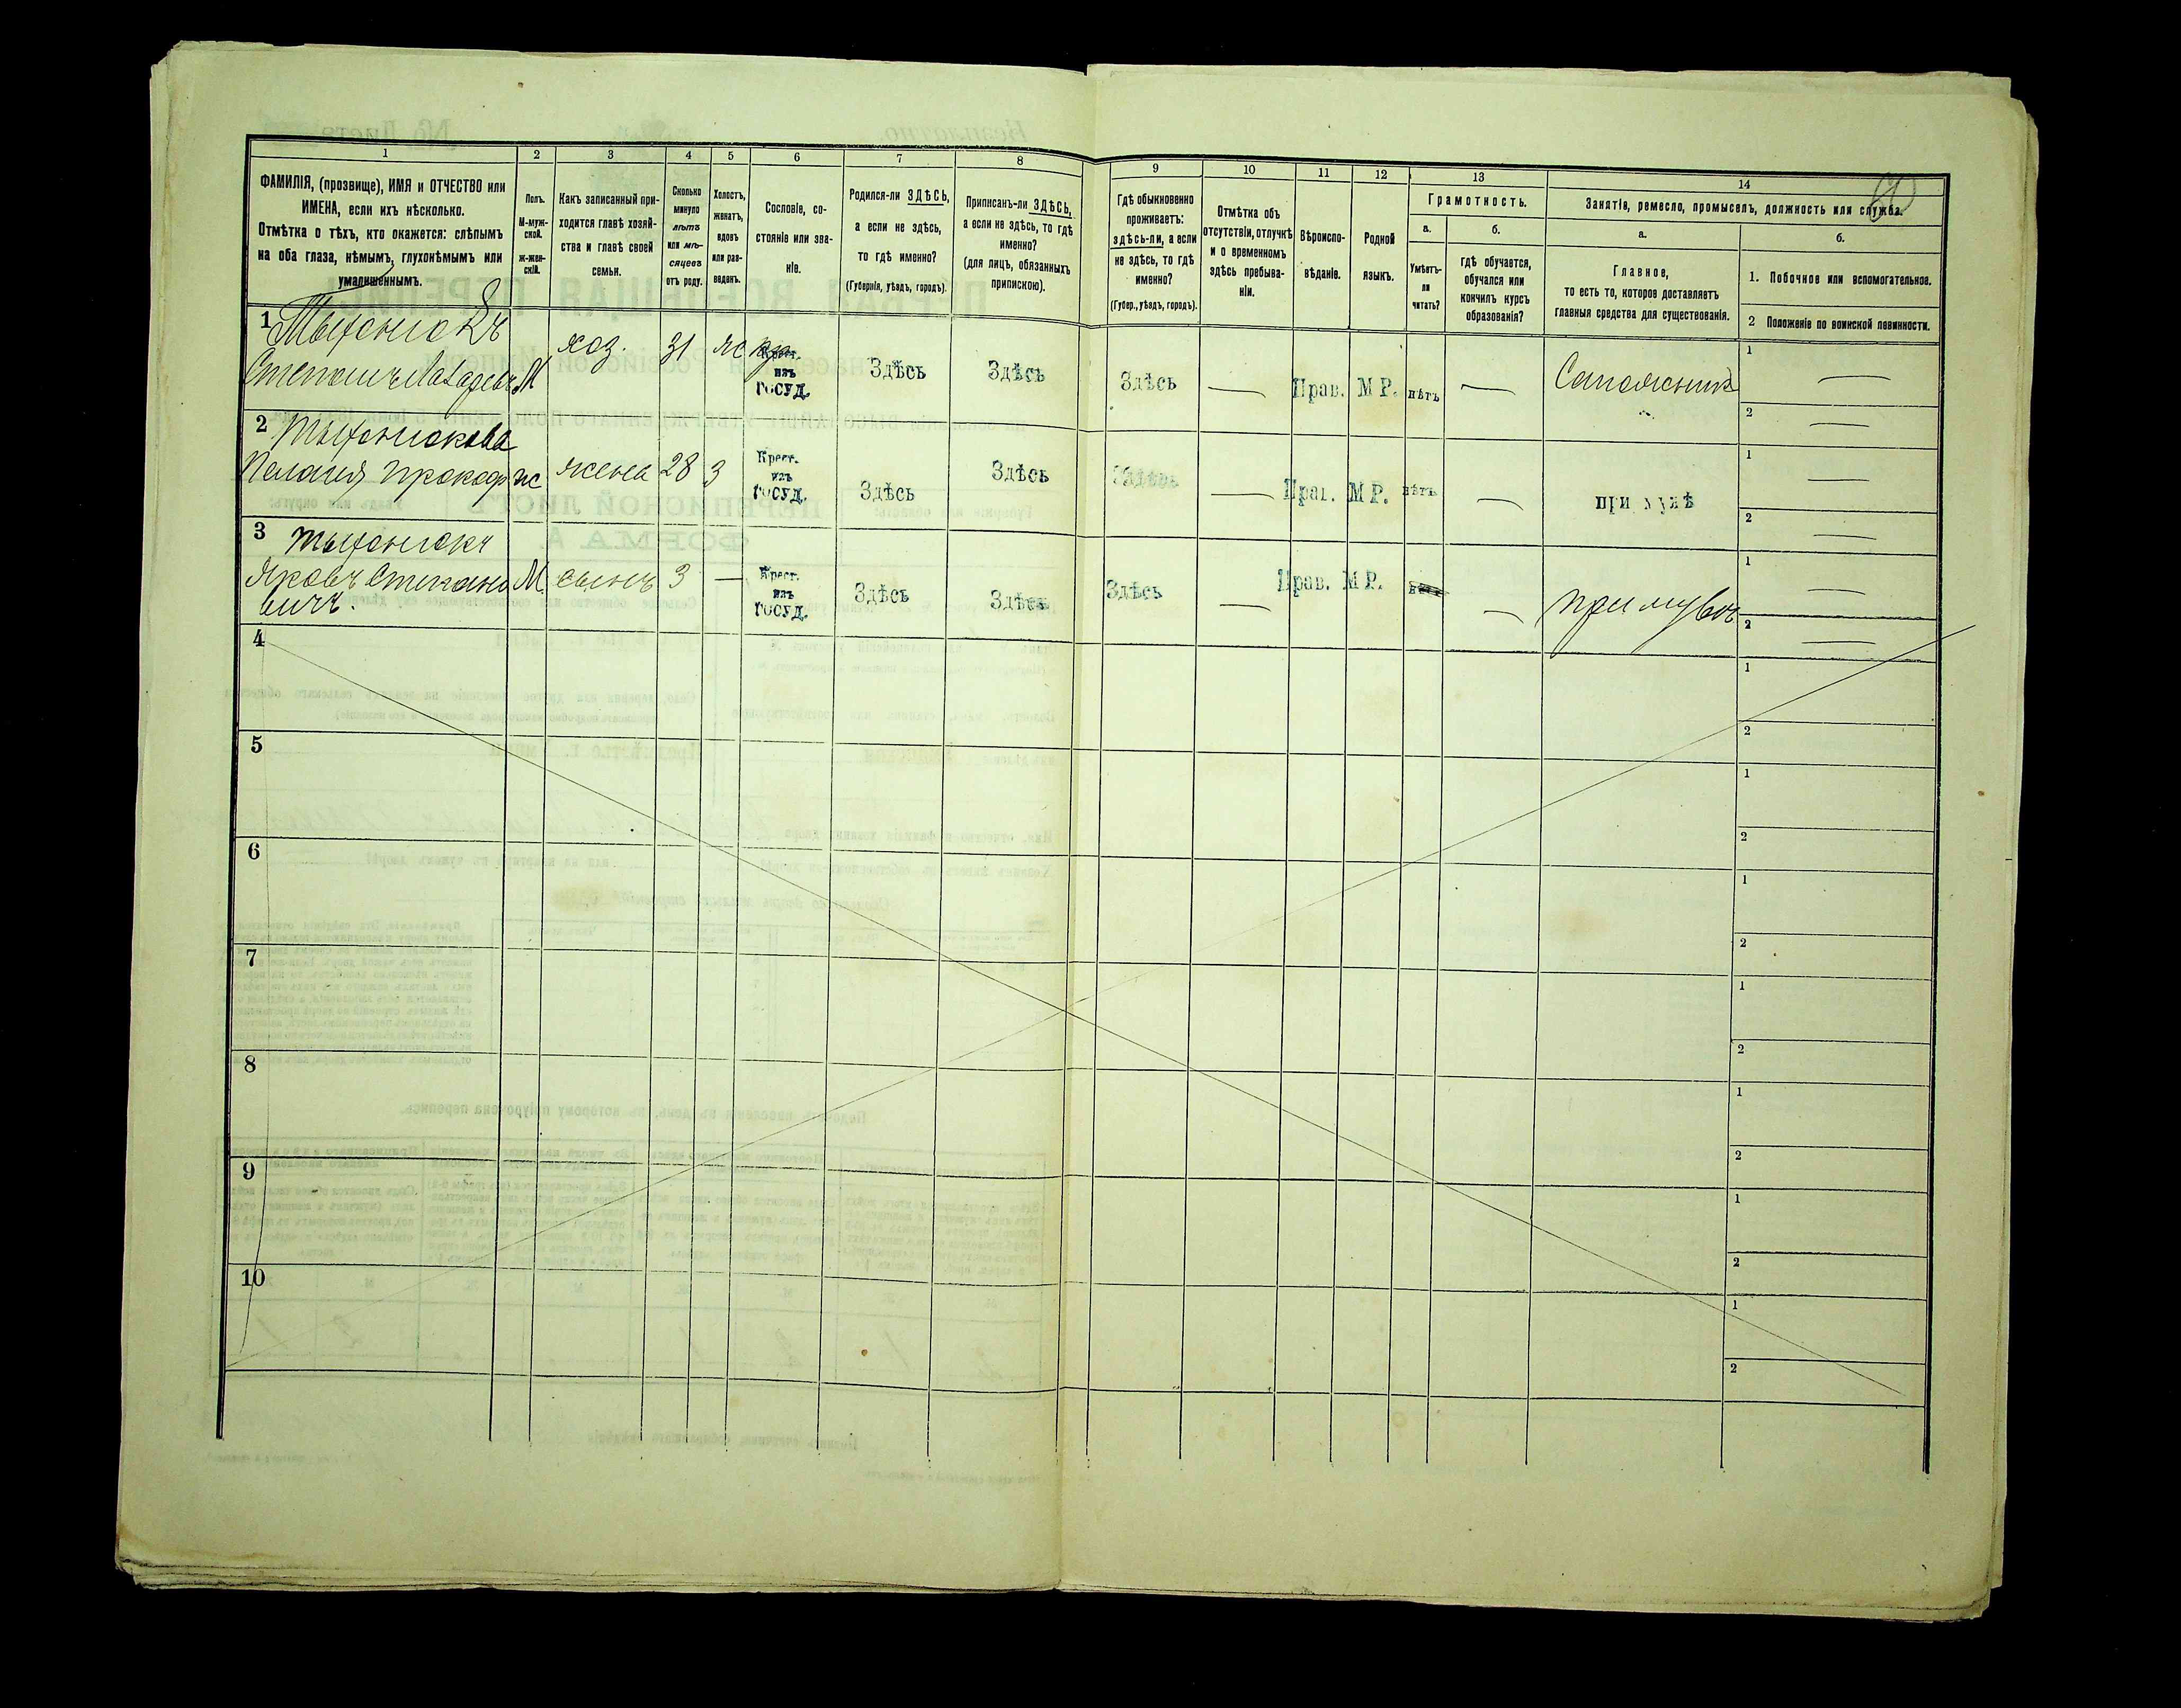 1 2 3 4 5 6 7 8 9 10 11 12 13 14
ФАМИЛІЯ, (прозвище), ИМЯ и ОТЧЕСТВО или
ИМЕНА, если ихъ нѣсколько.
Отмѣтка о тѣхъ, кто окажется: слѣпымъ
на оба глаза, нѣмымъ, глухонѣмымъ или
умалишеннымъ.
Полъ.
М-муж-
ской.
ж-жен-
скій.
Какъ записанный при-
ходится главѣ хозяй-
ства и главѣ своей
семьи.
Сколько
минуло
лѣтъ
или мѣ-
сяцевъ
отъ роду.
Холостъ,
женатъ,
вдовъ
или раз-
веденъ.
Сословіе, со-
стояніе или зва-
ніе.
Родился-ли ЗДѢСЬ,
а если не здѣсь,
то гдѣ именно?
(Губернія, уѣздъ, городъ).
Приписанъ-ли ЗДѢСЬ,
а если не здѣсь, то гдѣ
именно?
(для лицъ, обязанныхъ
припискою).
Гдѣ обыкновенно
проживаетъ:
здѣсь-ли, а если
не здѣсь, то гдѣ
именно?
(Губер., уѣздъ, городъ).
Отмѣтка объ
отсутствіи, отлучкѣ
и о временномъ
здѣсь пребыва-
ніи.
Вѣроиспо-
вѣданіе.
Родной
языкъ.
Грамотность.
а.
Умѣетъ-
ли
читать?
б.
гдѣ обучается,
обучался или
кончилъ курсъ
образованія?
Занятія, ремесло, промыселъ, должность или служба.
а.
Главное,
то есть то, которое доставляетъ
главныя средства для существованія.
б.
1. Побочное или вспомогательное.
2 Положеніе по воинской повинности.
1
М хоз. 31 ж
Крест.
изъ
ГОСУД.
Здѣсь Здѣсь Здѣсь — Прав. М Р. нѣтъ — Сапожникъ
1 —
2 —
2
Пелагія Прокоф ж жена 28 з
Крест.
изъ
ГОСУД.
Здѣсь Здѣсь Здѣсь — Прав. М Р. нѣтъ — при мужѣ
1 —
2 —
3
Яковъ Степано М. сынъ 3 —
вичъ.
Крест.
изъ
ГОСУД.
Здѣсь Здѣсь Здѣсь — Прав. М Р. —
1 —
2 —
4
1
2
5
1
2
6
1
2
7
1
2
8
1
2
9
1
2
10
1
2